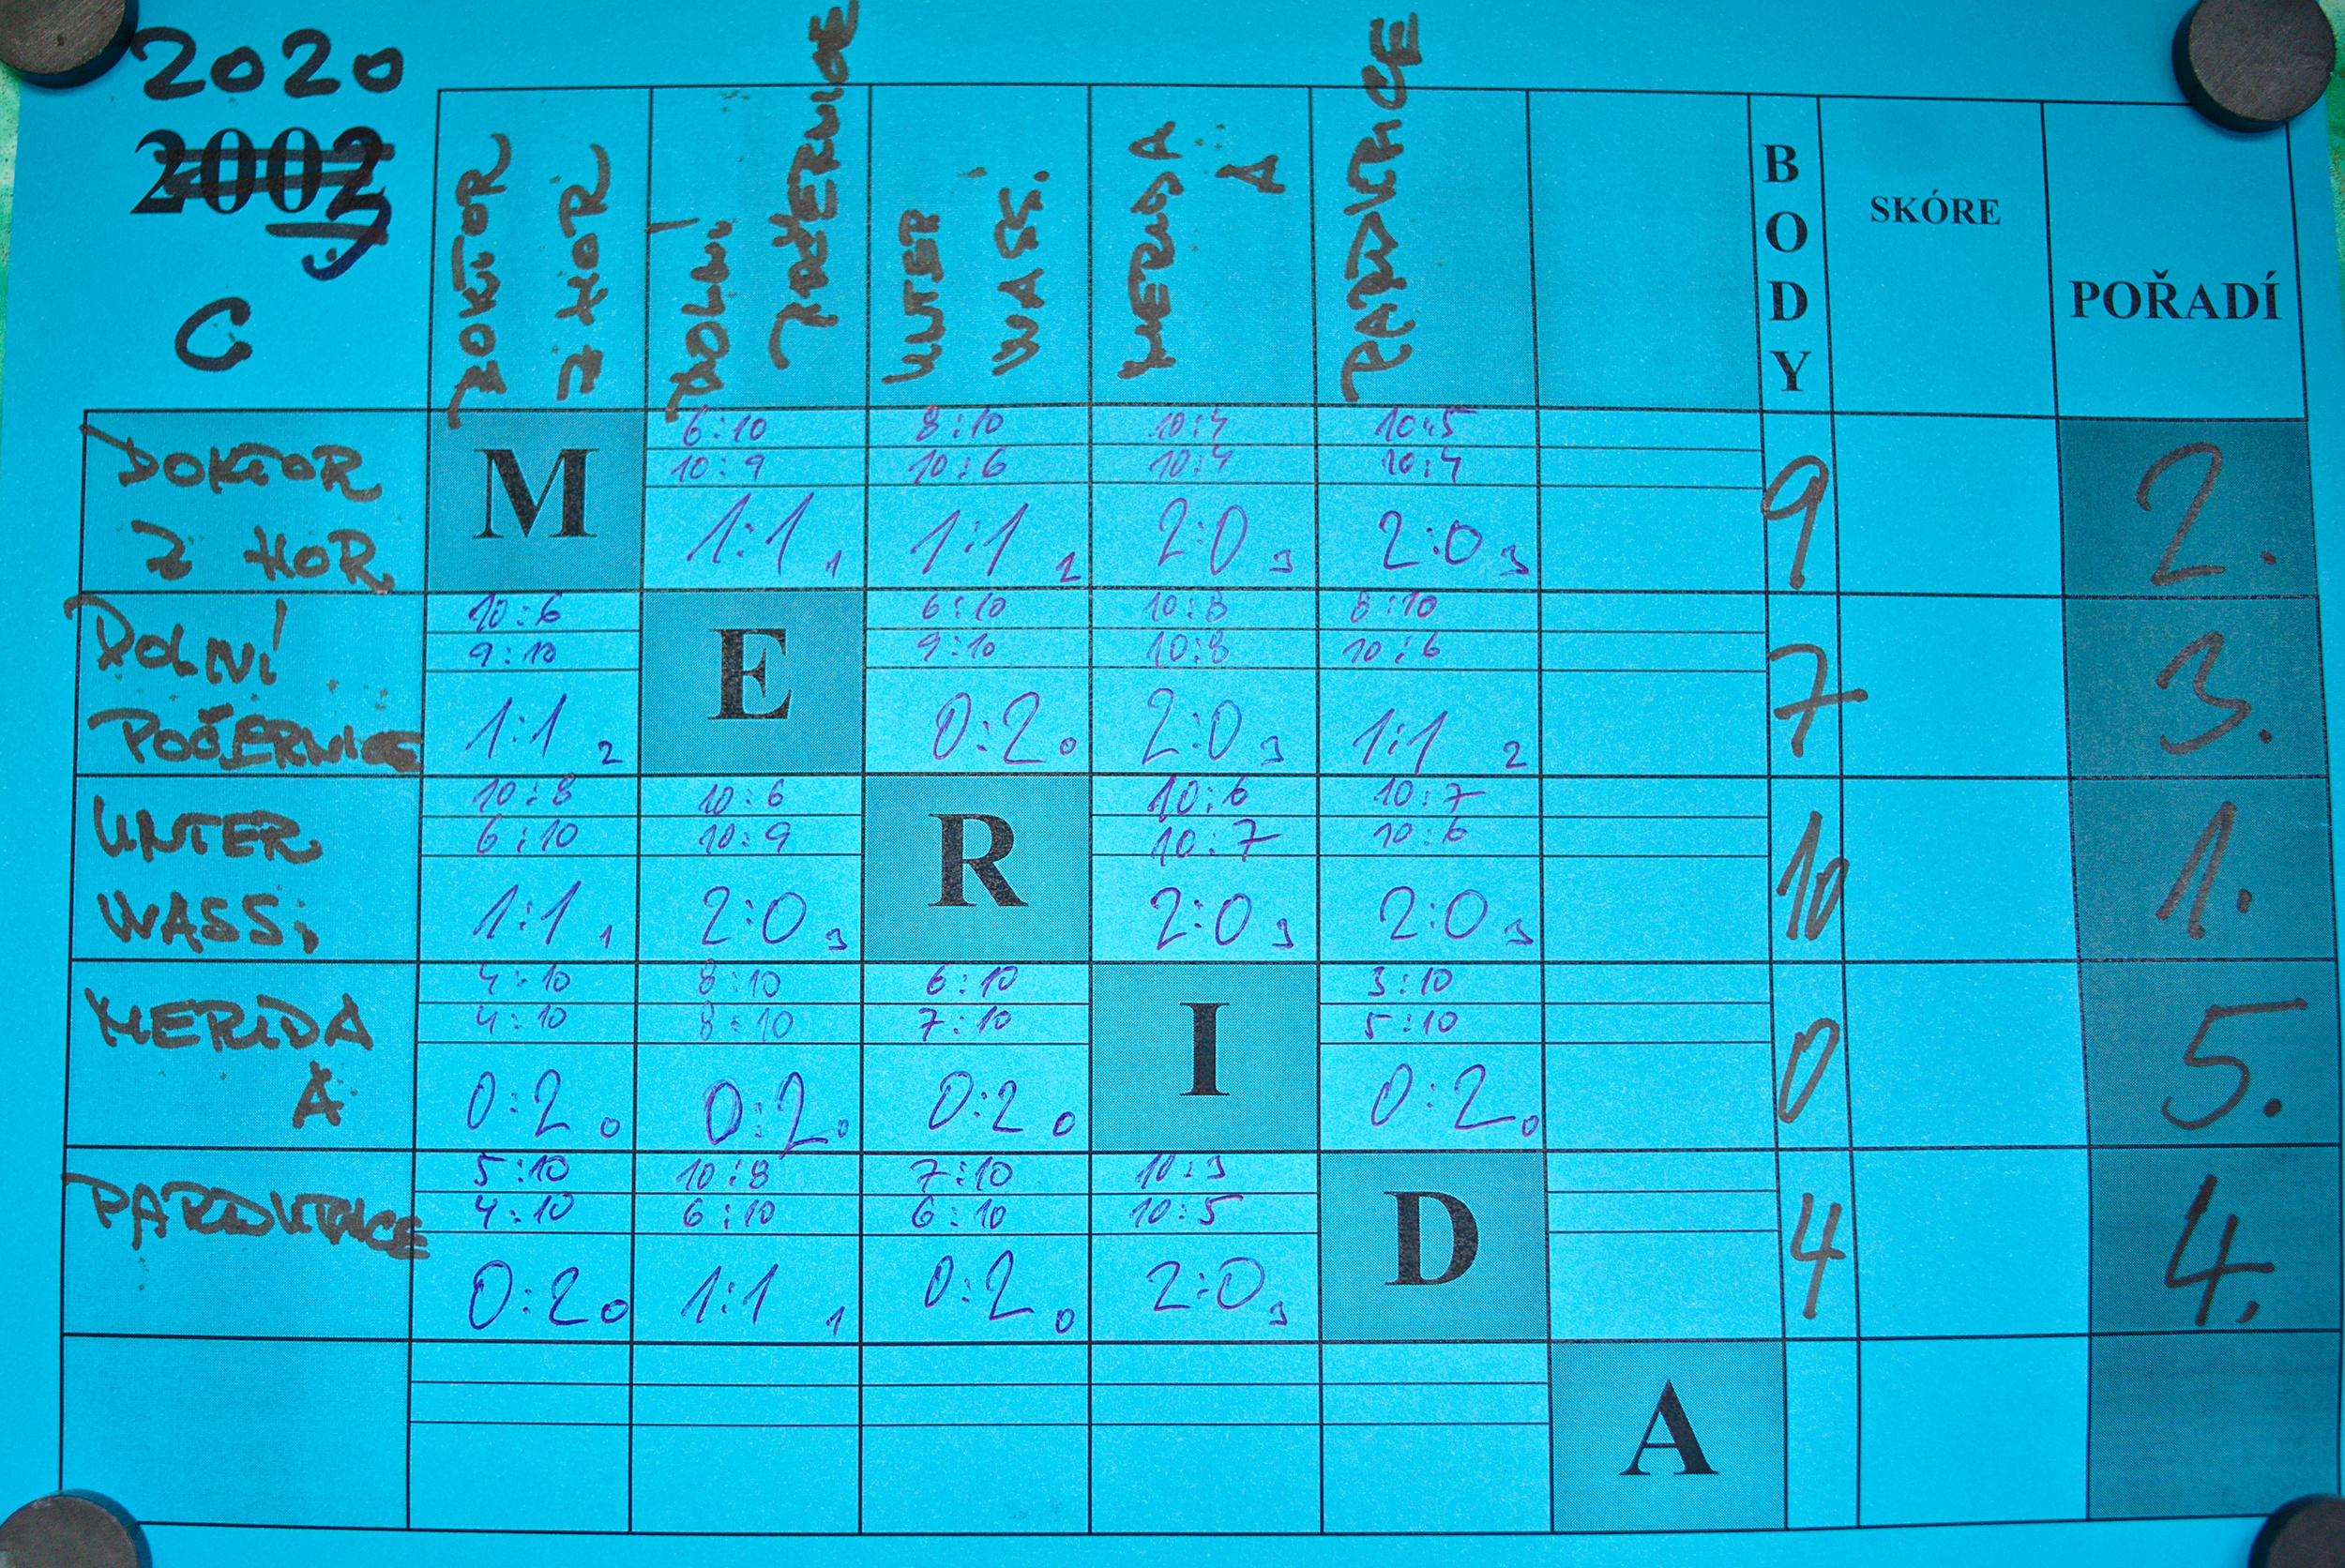 2020
2002
C
DOKTOR
Z HOR
DOLNÍ
POČERNICE
UNTER
WASS.
MERIDA
A
PARDUBICE
BODY
SKÓRE
POŘADÍ
DOKTOR
Z HOR
M
6:10 8:10 10:4 10:5
10:9 10:6 10:4 10:4
1:1 1 1:1 2 2:0 3 2:0 3
9
2.
DOLNÍ
POČERNICE
E
10:6 6:10 10:8 8:10
9:10 9:10 10:8 10:6
1:1 2 0:2 0 2:0 3 1:1 2
7
3.
UNTER
WASS.
R
10:8 10:6 10:6 10:7
6:10 10:9 10:7 10:6
1:1 1 2:0 3 2:0 3 2:0 3
10
1.
MERIDA
A
I
4:10 8:10 6:10 3:10
4:10 8:10 7:10 5:10
0:2 0 0:2 0 0:2 0 0:2 0
0
5.
PARDUBICE
D
5:10 10:8 7:10 10:3
4:10 6:10 6:10 10:5
0:2 0 1:1 1 0:2 0 2:0 3
4
4.
A